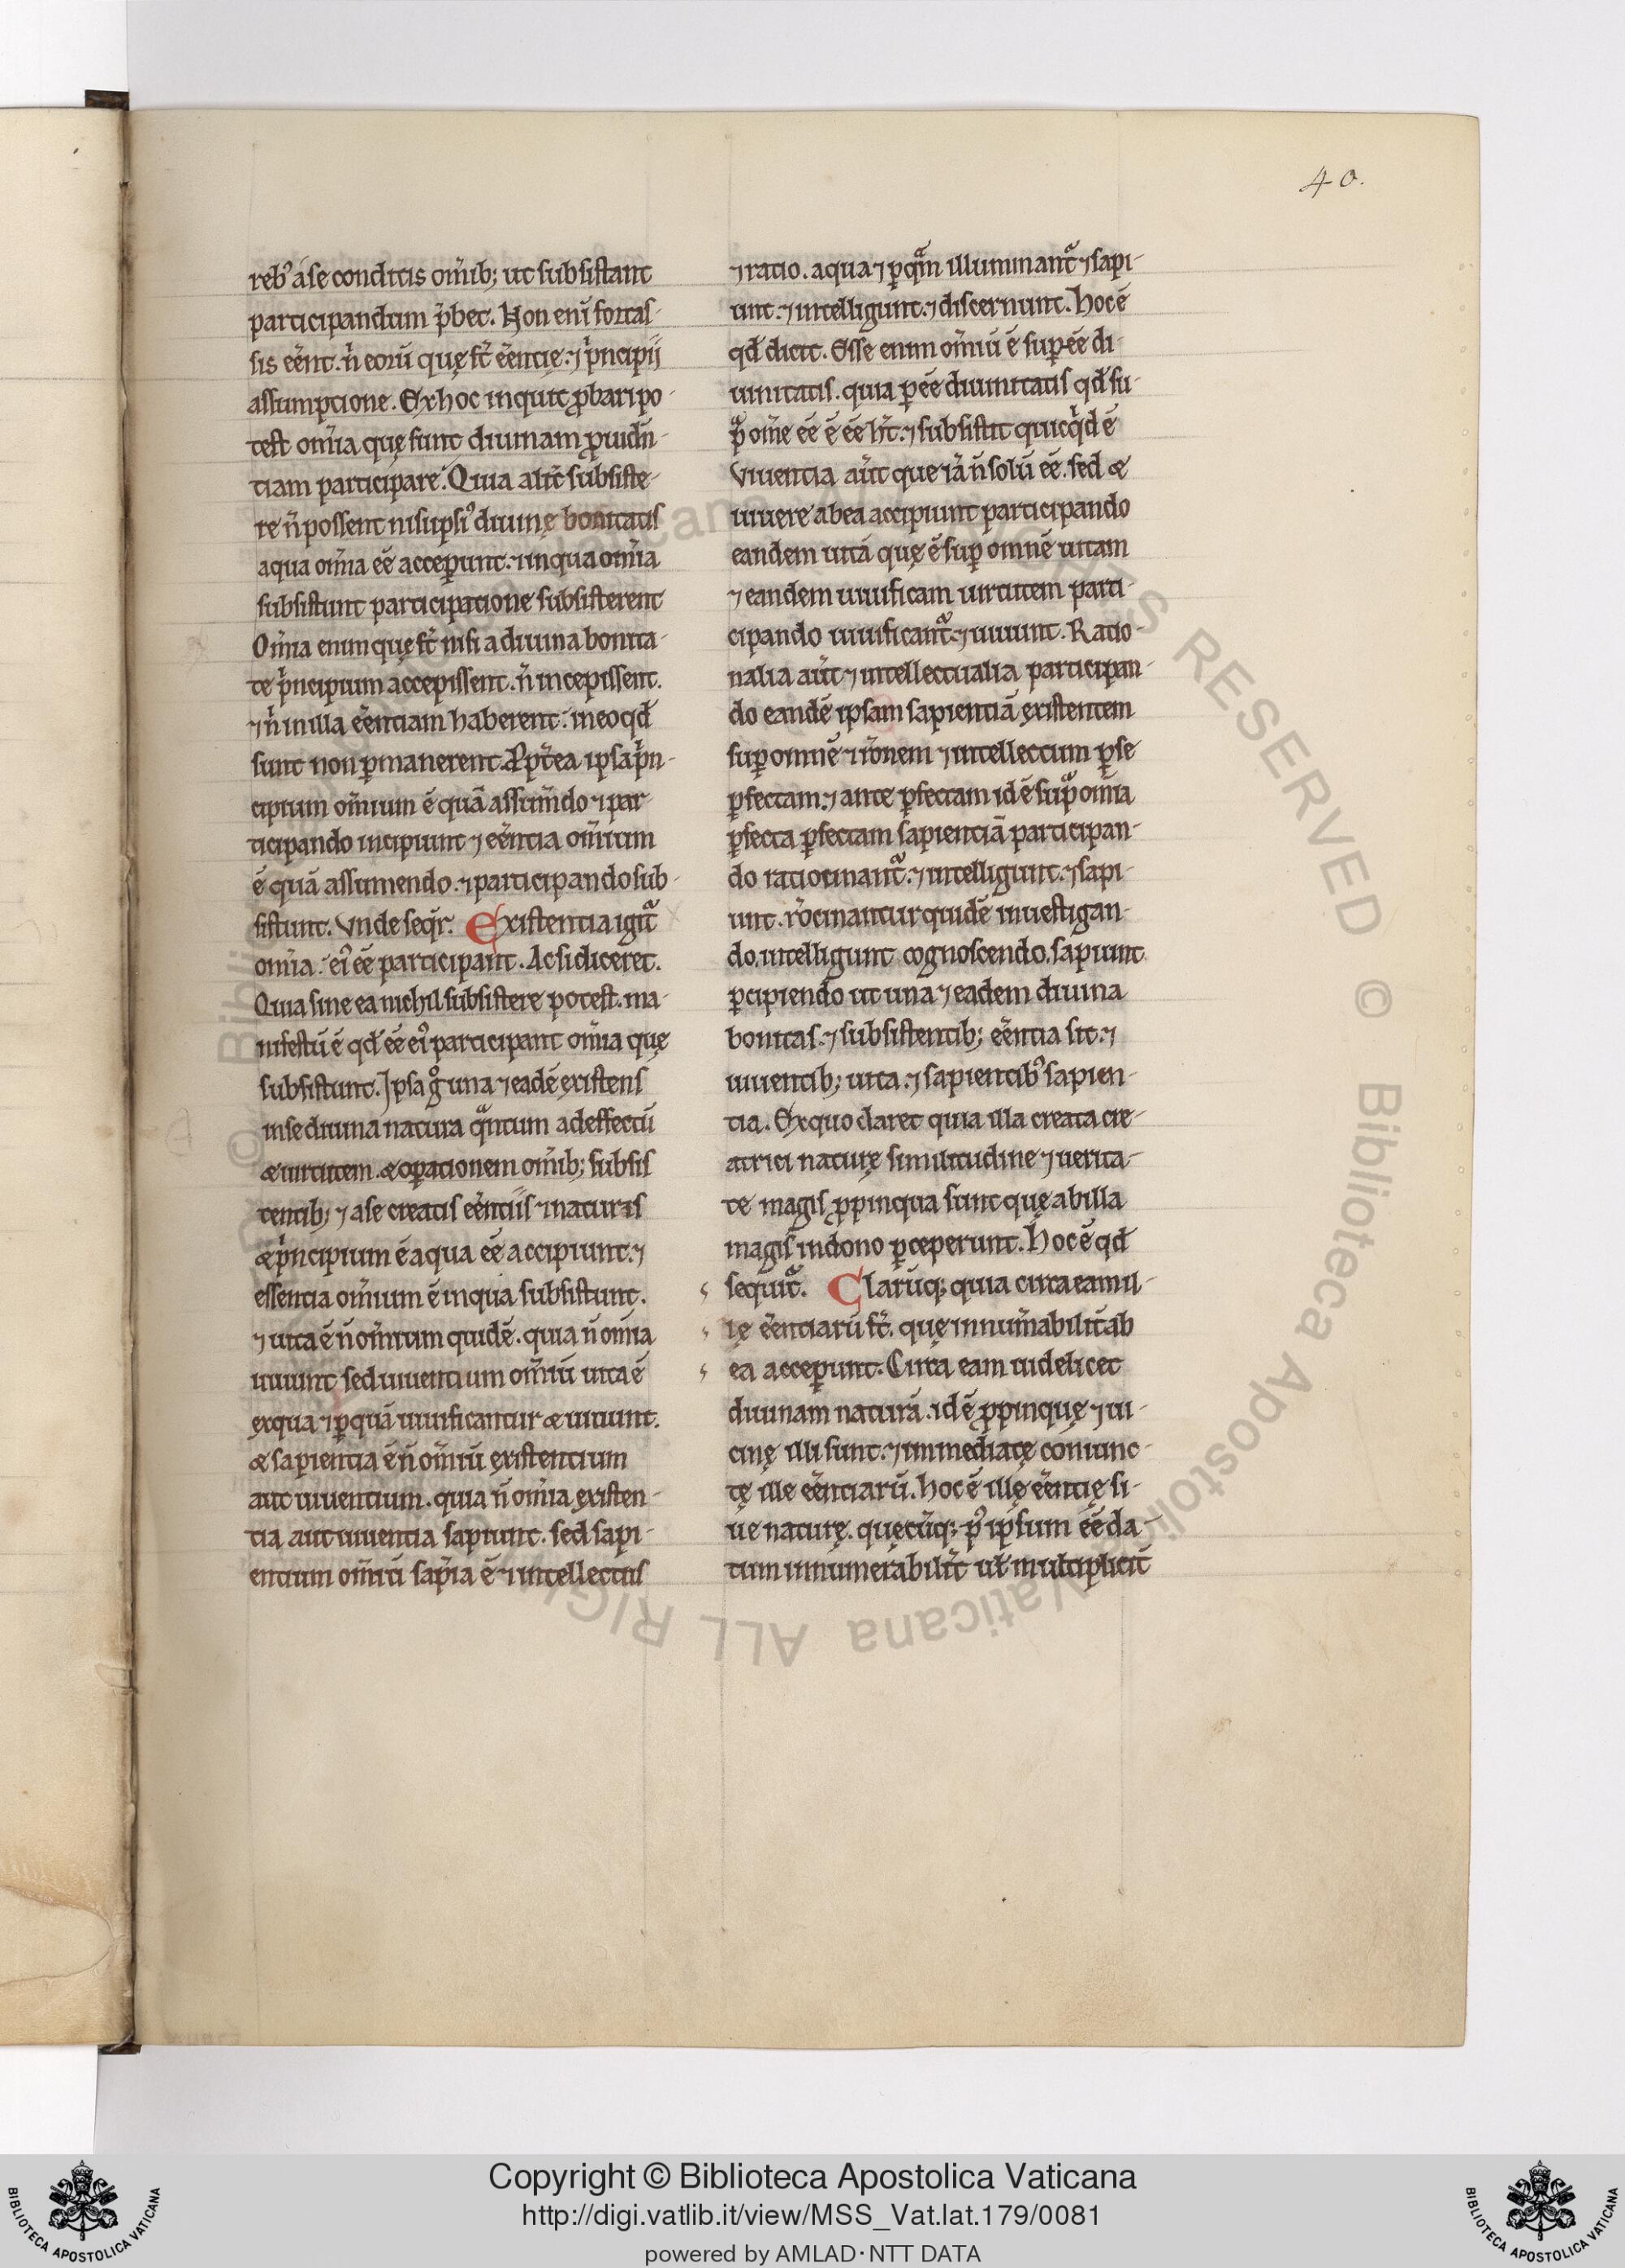 40.
rebꝰ a se conditis om̅ib; ut subsistant
participandum p̅bet. Non eni̅ fortas-
sis ee̅nt. n̅ eoru̅ quę st̅ ee̅ntię. ⁊ p̅ncipij
assumptione. Ex hoc inquit ꝓbari po-
test om̅ia quę sunt diuinam ꝓuide̅n-
tiam participare. Quia alit̅ subsiste-
re n̅ possent nisi ipsiꝰ diuinę bonitatis
a qua om̅ia ee̅ acceper̅unt. ⁊ in qua om̅ia
subsistunt participatione subsisterent
Om̅ia enim quę st̅ nisi a diuina bonita-
te p̅ncipium accepissent. n̅ incepissent.
⁊ n̅ in illa ee̅ntiam haberent. in eo qd̅
sunt non ꝑmanerent. Propt̅ea ipsa p̅n-
cipium om̅ium e̅ qua̅ assum̅do ⁊ par-
ticipando incipiunt ⁊ ee̅ntia om̅ium
e̅ qua̅ assumendo. ⁊ participando sub-
sistunt. Vnde seqr̅. Existentia igit̅
om̅ia. eiꝰ ee̅ participant. Ac si diceret.
Quia sine ea nichil subsistere potest. ma-
nifestu̅ e̅ qd̅ ee̅ eiꝰ participant om̅ia quę
subsistunt. Ipsa gͦ una ⁊ eade̅ existens
in se diuina natura qᷓntum ad effectu̅
æ uirtutem. æ oꝑationem om̅ib; subsis
tentib; ⁊ a se creatis ee̅ntiis ⁊ naturis
æ p̅ncipium e̅ a qua ee̅ accipiunt. ⁊
essentia om̅ium e̅ in qua subsistunt.
⁊ uita e̅ n̅ om̅ium quide̅. quia n̅ om̅ia
uiuunt sed uiuentium om̅iu̅ uita e̅
ex qua ⁊ ꝑ qua̅ uiuificantur æ uiuunt.
æ sapientia e̅ n̅ om̅iu̅ existentium
aut uiuentium. quia n̅ om̅ia existen-
tia aut uiuentia sapiunt. sed sapi-
entium om̅iu̅ sap̅ia e̅ ⁊ intellectus
⁊ ratio. a qua ⁊ ꝑ qᷓm illuminant᷑ ⁊ sapi-
unt. ⁊ intelligunt. ⁊ discernunt. Hoc e̅
qd̅ dicit. Esse enim om̅iu̅ e̅ suꝑ ee̅ di-
uinitatis. quia ꝑ ee̅ diuinitatis qd̅ su-
pᷓ om̅e ee̅ e̅ ee̅ h̅t. ⁊ subsistit quicqͥd e̅
Viuentia aut̅ que ia̅ n̅ solu̅ ee̅. sed æ
uiuere ab ea accipiunt participando
eandem uita̅ quę e̅ suꝑ omne̅ uitam
⁊ eandem uiuificam uirtutem parti-
cipando uiuificant᷑. ⁊ uiuunt. Ratio-
nalia aut̅ ⁊ intellectualia participan-
do eande̅ ipsam sapientia̅ existentem
suꝑ omne̅ ⁊ ro̅nem ⁊ intellectum ꝑ se
ꝑfectam. ⁊ ante ꝑfectam id e̅ supᷓ om̅ia
ꝑfecta ꝑfectam sapientia̅ participan-
do ratiocinant᷑. ⁊ intelligunt. ⁊ sapi-
unt. ro̅cinantur quide̅ inuestigan-
do. intelligunt cognoscendo. sapiunt
ꝑcipiendo ut una ⁊ eadem diuina
bonitas. ⁊ subsistentib; ee̅ntia sit. ⁊
uiuentib; uita. ⁊ sapientibꝰ sapien-
tia. Ex quo claret quia illa creata cre-
atrici naturę similitudine ⁊ uerita-
te magis ꝓpinqua sunt quę ab illa
magis in dono ꝑceperunt. Hoc e̅ qd̅
sequit᷑. Claru̅q; quia circa eam il-
lę ee̅ntiaru̅ st̅. quę innum̅abilit̅ ab
ea acceꝑunt. Circa eam uidelicet
diuinam natura̅. id e̅ ꝓpinquę ⁊ ui-
cinę illi sunt. ⁊ immediatę coniunc-
tę ille ee̅ntiaru̅. hoc e̅ illę ee̅ntię si-
ue naturę. quęcu̅q; pꝰ ipsum ee̅ da-
tum innumerabilit̅ ut̅ multiplicit̅
Copyright © Biblioteca Apostolica Vaticana
http://digi.vatlib.it/view/MSS_Vat.lat.179/0081
powered by AMLAD·NTT DATA
BIBLIOTECA APOSTOLICA VATICANA
BIBLIOTECA APOSTOLICA VATICANA